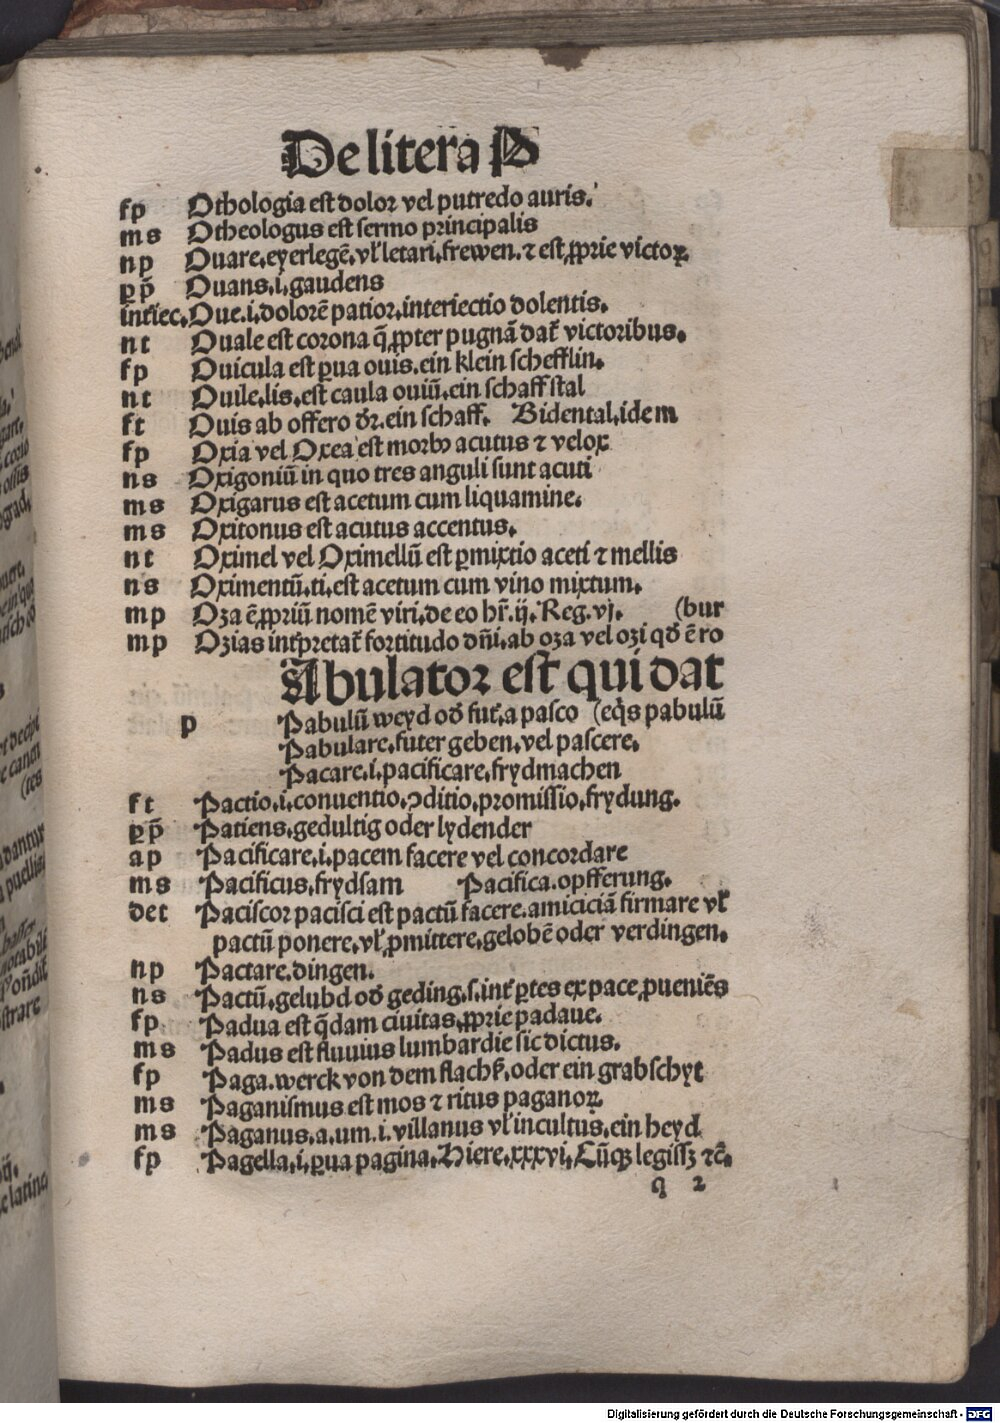 De litera P
fp Othologia est dolor vel putredo auris.
ms Otheologus est sermo principalis
np Ouare.eyerlegē.vl̕ letari.frewen.⁊ est ꝓprie victoꝝ.
ꝑp̄ Ouans.i.gaudens
inťiec. Oue.i.dolorē patior.interiectio dolentis.
nt Ouale est corona q̄ ꝓpter pugnā dať victoribus.
fp Ouicula est ꝑua ouis.ein klein schefflin.
nt Ouile.lis.est caula ouiū.ein schaff stal
ft Ouis ab offero dr̄.ein schaff. Bidental.idem
fp Oxia vel Oxea est morbꝰ acutus ⁊ velox
ns Oxigoniū in quo tres anguli sunt acuti
ms Oxigarus est acetum cum liquamine.
ms Oxitonus est acutus accentus.
nt Oximel vel Oximellū est ꝑmixtio aceti ⁊ mellis
ns Oximentū.ti.est acetum cum vino mixtum.
mp Oza ē ꝓpriū nomē viri.de eo hr̄.ij.Reg.vj. (bur
mp Ozias inťpretať fortitudo dn̄i.ab oza vel ozi qd̄ ē ro
PAbulator est qui dat
p Pabulū weyd od̄ fuť.a pasco (eq̄s pabulū
Pabulare.futer geben.vel pascere.
Pacare.i.pacificare.frydmachen
ft Pactio.i.conuentio.ↄditio.promissio.frydung.
ꝑp̄ Patiens.gedultig oder lydender
ap Pacificare.i.pacem facere vel concordare
ms Pacificus.frydsam Pacifica.opfferung.
det Paciscor pacisci est pactū facere.amiciciā firmare vl̕
pactū ponere.vl̕ ꝓmittere.gelobē oder verdingen.
np Pactare.dingen.
ns Pactū.gelubd od̄ geding.s.inť ꝑtes ex pace ꝓueniēs
fp Padua est q̄dam ciuitas.ꝓprie padaue.
ms Padus est fluuius lumbardie sic dictus.
fp Paga.werck von dem flachß.oder ein grabschyt
ms Paganismus est mos ⁊ ritus paganoꝝ.
ms Paganus.a.um.i.villanus vl̕ incultus.ein heyd
fp Pagella.i.ꝑua pagina.Hiere.xxxvi.Cūqꝫ legissꝫ ⁊c̄.
q 2
Digitalisierung gefördert durch die Deutsche Forschungsgemeinschaft - DFG